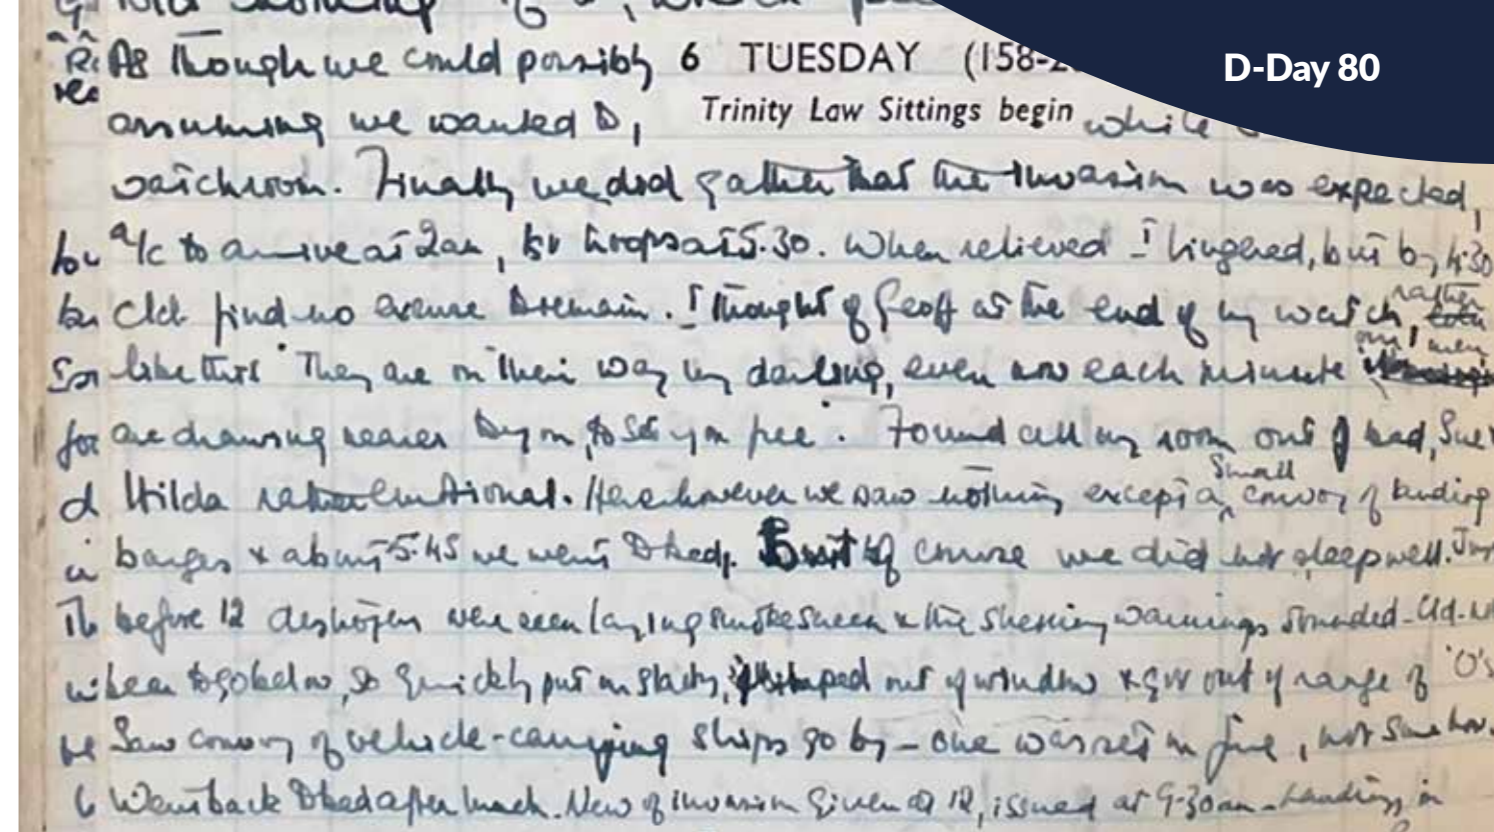 D-Day 80
As though we could possibly
6 TUESDAY (158-2
assuming we wanted to,
Trinity Law Sittings begin
while
watchroom. Finally we did gather that the invasion was expected,
a/c to arrive at 2am, troops at 5.30. When relieved I lingered, but by 4.30
cld find no excuse to remain. I thought of Geoff at the end of my watch, rather
like this "They are on their way my darling, even now each minute our men
are drawing nearer to you, to set you free". Found all my room out of bed, Sue
Hilda rather emotional. Here however we saw nothing except a small convoy of landing
barges & about 5.45 we went to bed. But of course we did not sleep well. Just
before 12 destroyers were seen laying smokescreen & the shelling warnings sounded. Cld
to go below, so quickly put on slacks, out of window & got out of range of 'O's
Saw convoy of vehicle-carrying ships go by - one was set on fire, not sure how.
Went back to bed after lunch. News of invasion given at 12, issued at 9.30am - Landings in